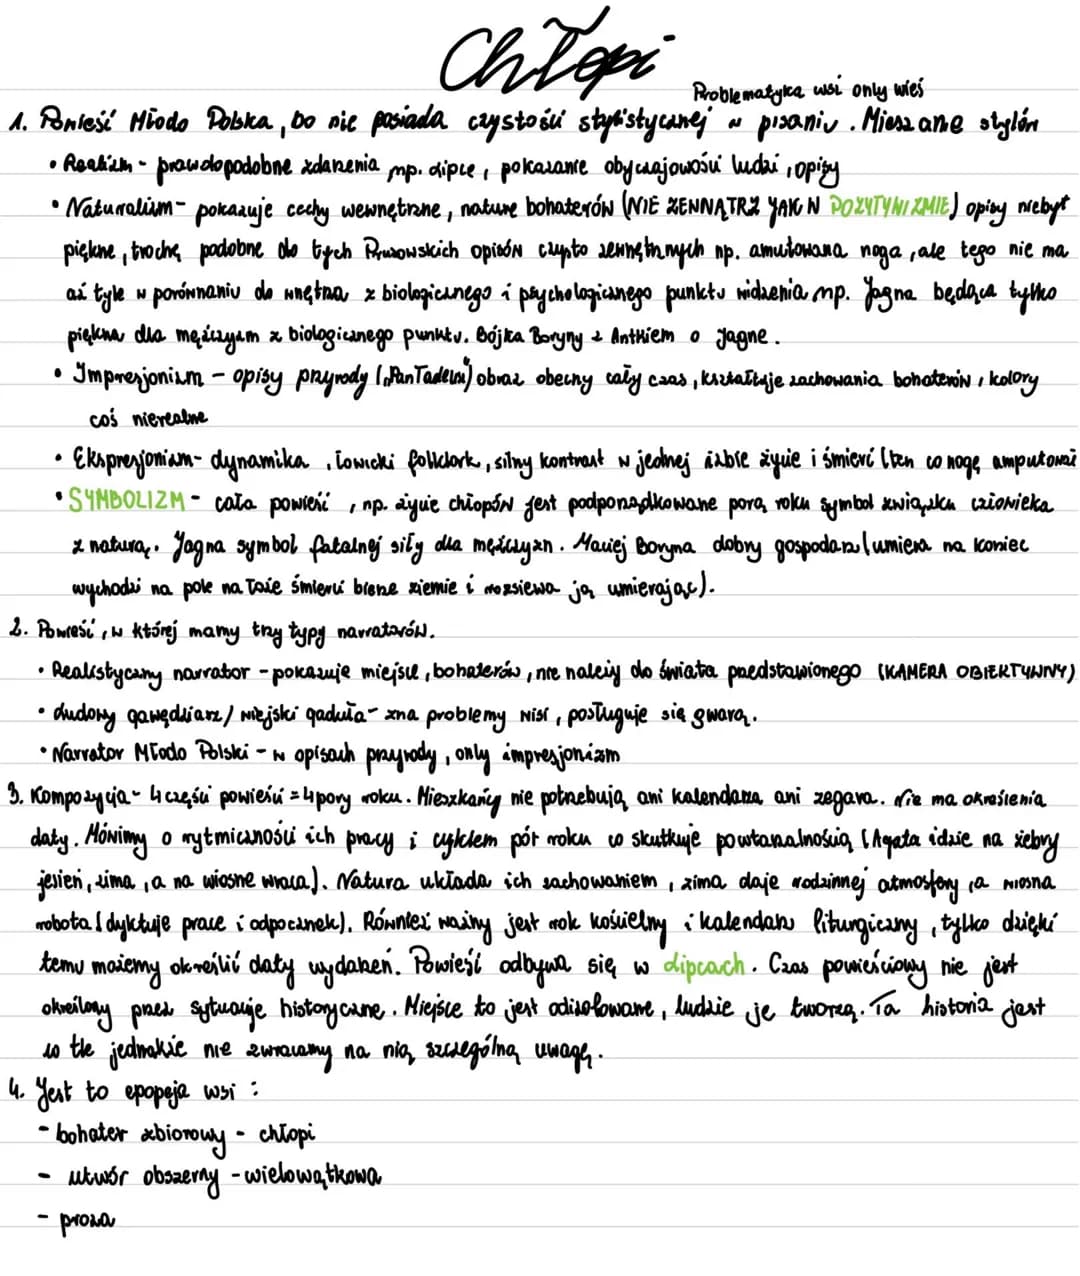 Chłopi
Problematyka wsi only wieś
1. Powieść Młodo Polska, bo nie posiada czystości stylistycznej w pisaniu. Mieszane stylów
• Realizm - prawdopodobne zdarzenia np. Lipce, pokazanie obyczajowości ludzi, opisy
• Naturalizm - pokazuje cechy wewnętrzne, nature bohaterów (NIE ZEWNĄTRZ JAK W POZYTYWIZMIE) opisy niebyt
piękne, trochę podobne do tych Prusowskich opisów czysto zewnętrznych np. amutowana noga, ale tego nie ma
aż tyle w porównaniu do wnętrza z biologicznego i psychologicznego punktu widzenia np. Jagna będąca tylko
piękna dla mężczyzn z biologicznego punktu. Bójka Boryny z Antkiem o Jagne.
• Impresjonizm - opisy przyrody („Pan Tadeusz”) obraz obecny cały czas, kształtuje zachowania bohaterów, kolory
coś nierealne
• Ekspresjonizm - dynamika, łowicki folklork, silny kontrast w jednej izbie życie i śmierć (ten co nogę amputował
• SYMBOLIZM - cała powieść, np. życie chłopów jest podporządkowane porą roku symbol związku człowieka
z naturą. Jagna symbol fatalnej siły dla mężczyzn. Maciej Boryna dobry gospodarz (umiera na koniec
wychodzi na pole na łoże śmierci bierze ziemie i rozsiewa ją umierając).
2. Powieść, w której mamy trzy typy narratorów.
• Realistyczny narrator - pokazuje miejsce, bohaterów, nie należy do świata przedstawionego (KAMERA OBIEKTYWNY)
• Ludowy gawędziarz/ wiejski gaduła - zna problemy wisi, posługuje się gwarą.
• Narrator Młodo Polski - w opisach przyrody, only impresjonizm
3. Kompozycja - 4 części powieści = 4 pory roku. Mieszkańcy nie potrzebują ani kalendarza ani zegara. Nie ma określenia
daty. Mówimy o rytmiczności ich pracy i cyklem pór roku co skutkuje powtarzalnością (Agata idzie na żebry
jesień, zima, a na wiosne wraca). Natura układa ich zachowaniem, zima daje rodzinnej atmosfery, a wiosna
robota (dyktuje prace i odpoczynek). Również ważny jest rok kościelny i kalendarz liturgiczny, tylko dzięki
temu możemy określić daty wydarzeń. Powieść odbywa się w Lipcach. Czas powieściowy nie jest
określony przez sytuacje historyczne. Miejsce to jest odizolowane, ludzie je tworzą. Ta historia jest
w tle jednakże nie zwracamy na nią szczególną uwagę.
4. Jest to epopeja wsi :
- bohater zbiorowy - chłopi
- utwór obszerny - wielowątkowa
- proza